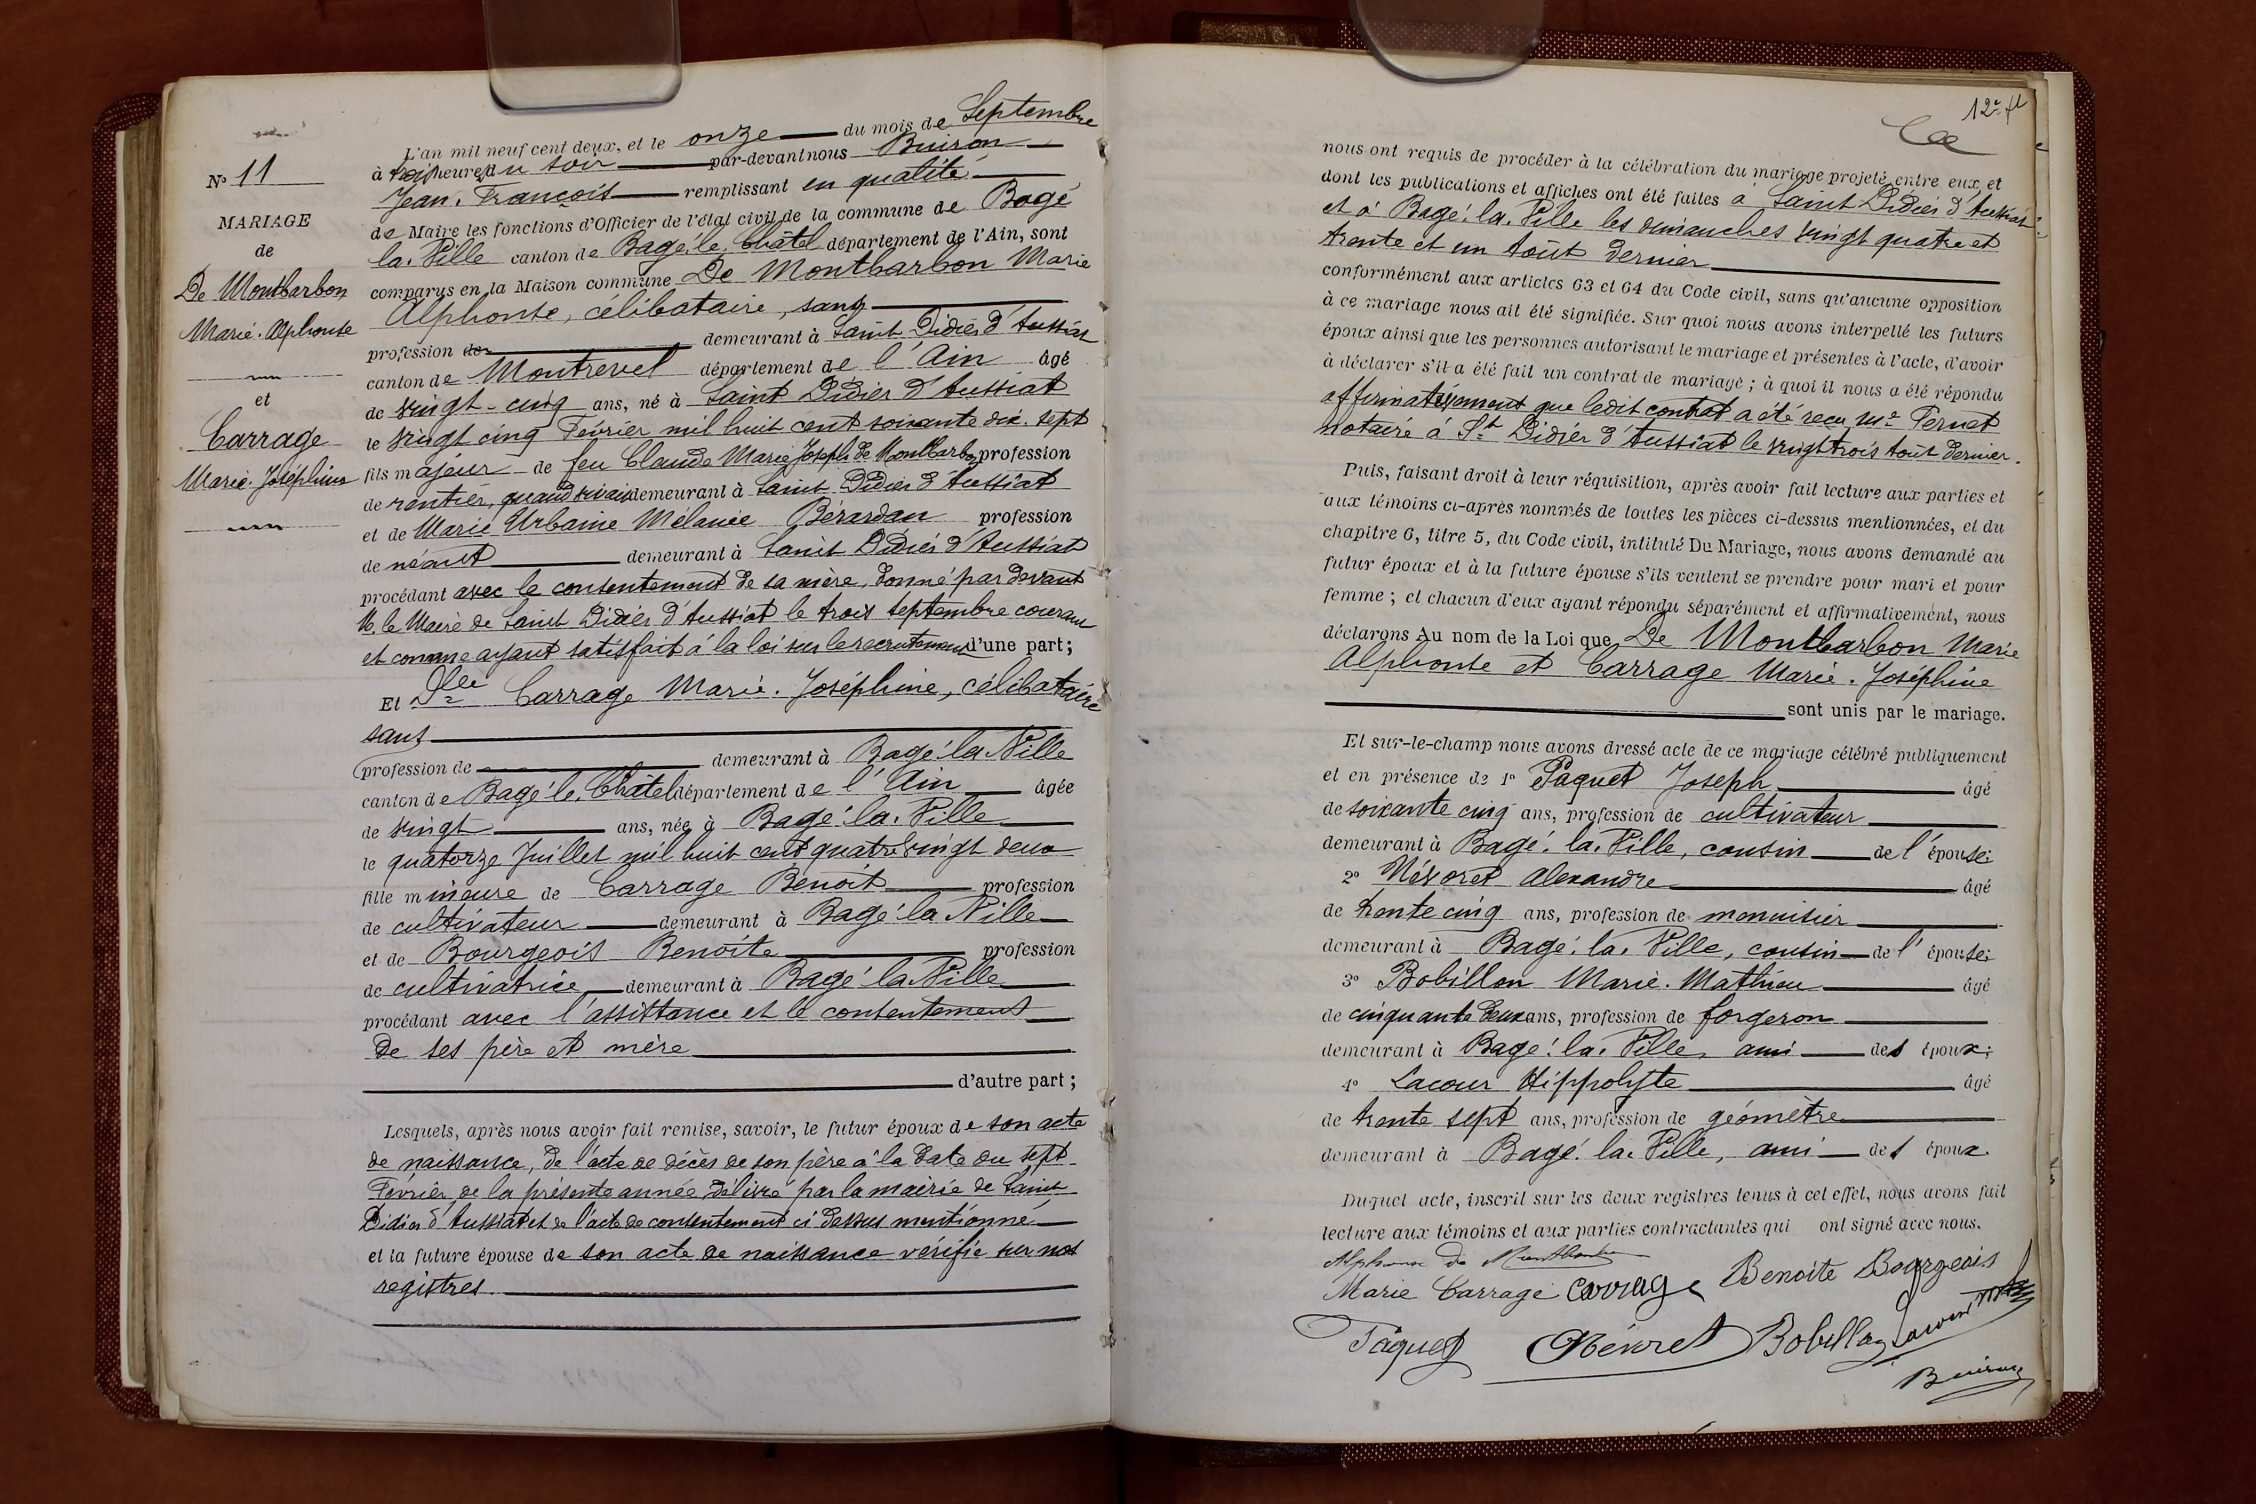 N° 11
MARIAGE
de
De Montbarbon
Marie. Alphonse
et
Carrage
Marie. Joséphine
L'an mil neuf cent deux, et le onze du mois de Septembre
à trois heures du soir par-devant nous Buiron
Jean. François remplissant en qualité
de Maire les fonctions d'Officier de l'état civil de la commune de Bagé
la. Ville canton de Bagé. le. Châtel département de l'Ain, sont
comparus en la Maison commune De Montbarbon Marie
Alphonse, célibataire, sans
profession de demeurant à Saint Didier d'Aussiat
canton de Montrevel département de l'Ain âgé
de vingt-cinq ans, né à Saint Didier d'Aussiat
le vingt cinq Février mil huit cent soixante dix. sept
fils majeur de feu Claude Marie Joseph de Montbarbon profession
de rentier, quand vivait demeurant à Saint Didier d'Aussiat
et de Marie Urbaine Mélanie Bérardan profession
de néant demeurant à Saint Didier d'Aussiat
procédant avec le consentement de sa mère, donné par devant
M. le Maire de Saint Didier d'Aussiat le trois septembre courant
et comme ayant satisfait à la loi sur le recrutement d'une part ;
Et Dlle Carrage Marie. Joséphine, célibataire
sans
profession de demeurant à Bagé la Ville
canton de Bagé. le. Châtel département de l'Ain âgée
de vingt ans, née à Bagé. la. Ville
le quatorze Juillet mil huit cent quatre vingt deux
fille mineure de Carrage Benoît profession
de cultivateur demeurant à Bagé. la Ville
et de Bourgeois Benoîte profession
de cultivatrice demeurant à Bagé la Ville
procédant avec l'assistance et le consentement
de ses père et mère
d'autre part ;
Lesquels, après nous avoir fait remise, savoir, le futur époux de son acte
de naissance, de l'acte de décès de son père à la date du sept
Février de la présente année délivré par la mairie de Saint
Didier d'Aussiat et de l'acte de consentement ci dessus mentionné
et la future épouse de son acte de naissance vérifié sur nos
registres.
12e ft
nous ont requis de procéder à la célébration du mariage projeté entre eux et
dont les publications et affiches ont été faites à Saint Didier d'Aussiat
et à Bagé. la. Ville les dimanches vingt quatre et
trente et un Août dernier
conformément aux articles 63 et 64 du Code civil, sans qu'aucune opposition
à ce mariage nous ait été signifiée. Sur quoi nous avons interpellé les futurs
époux ainsi que les personnes autorisant le mariage et présentes à l'acte, d'avoir
à déclarer s'il a été fait un contrat de mariage ; à quoi il nous a été répondu
affirmativement que ledit contrat a été reçu Me Fernet
notaire à St Didier d'Aussiat le vingt trois Août dernier.
Puis, faisant droit à leur réquisition, après avoir fait lecture aux parties et
aux témoins ci-après nommés de toutes les pièces ci-dessus mentionnées, et du
chapitre 6, titre 5, du Code civil, intitulé Du Mariage, nous avons demandé au
futur époux et à la future épouse s'ils veulent se prendre pour mari et pour
femme ; et chacun d'eux ayant répondu séparément et affirmativement, nous
déclarons Au nom de la Loi que De Montbarbon Marie
Alphonse et Carrage Marie. Joséphine
sont unis par le mariage.
Et sur-le-champ nous avons dressé acte de ce mariage célébré publiquement
et en présence de 1° Paquet Joseph âgé
de soixante cinq ans, profession de cultivateur
demeurant à Bagé. la. Ville, cousin de l'épouse;
2° Névoret Alexandre âgé
de trente cinq ans, profession de menuisier
demeurant à Bagé. la. Ville, cousin de l'épouse;
3° Bobillon Marie. Mathieu âgé
de cinquante deux ans, profession de forgeron
demeurant à Bagé. la. Ville, ami des époux;
4° Lacour Hippolyte âgé
de trente sept ans, profession de géomètre
demeurant à Bagé. la. Ville, ami des époux.
Duquel acte, inscrit sur les deux registres tenus à cet effet, nous avons fait
lecture aux témoins et aux parties contractantes qui ont signé avec nous.
Alphonse de Montbarbon
Marie Carrage Carrage Benoite Bourgeois
Paquet Névoret Bobillon Lacour
Buiron